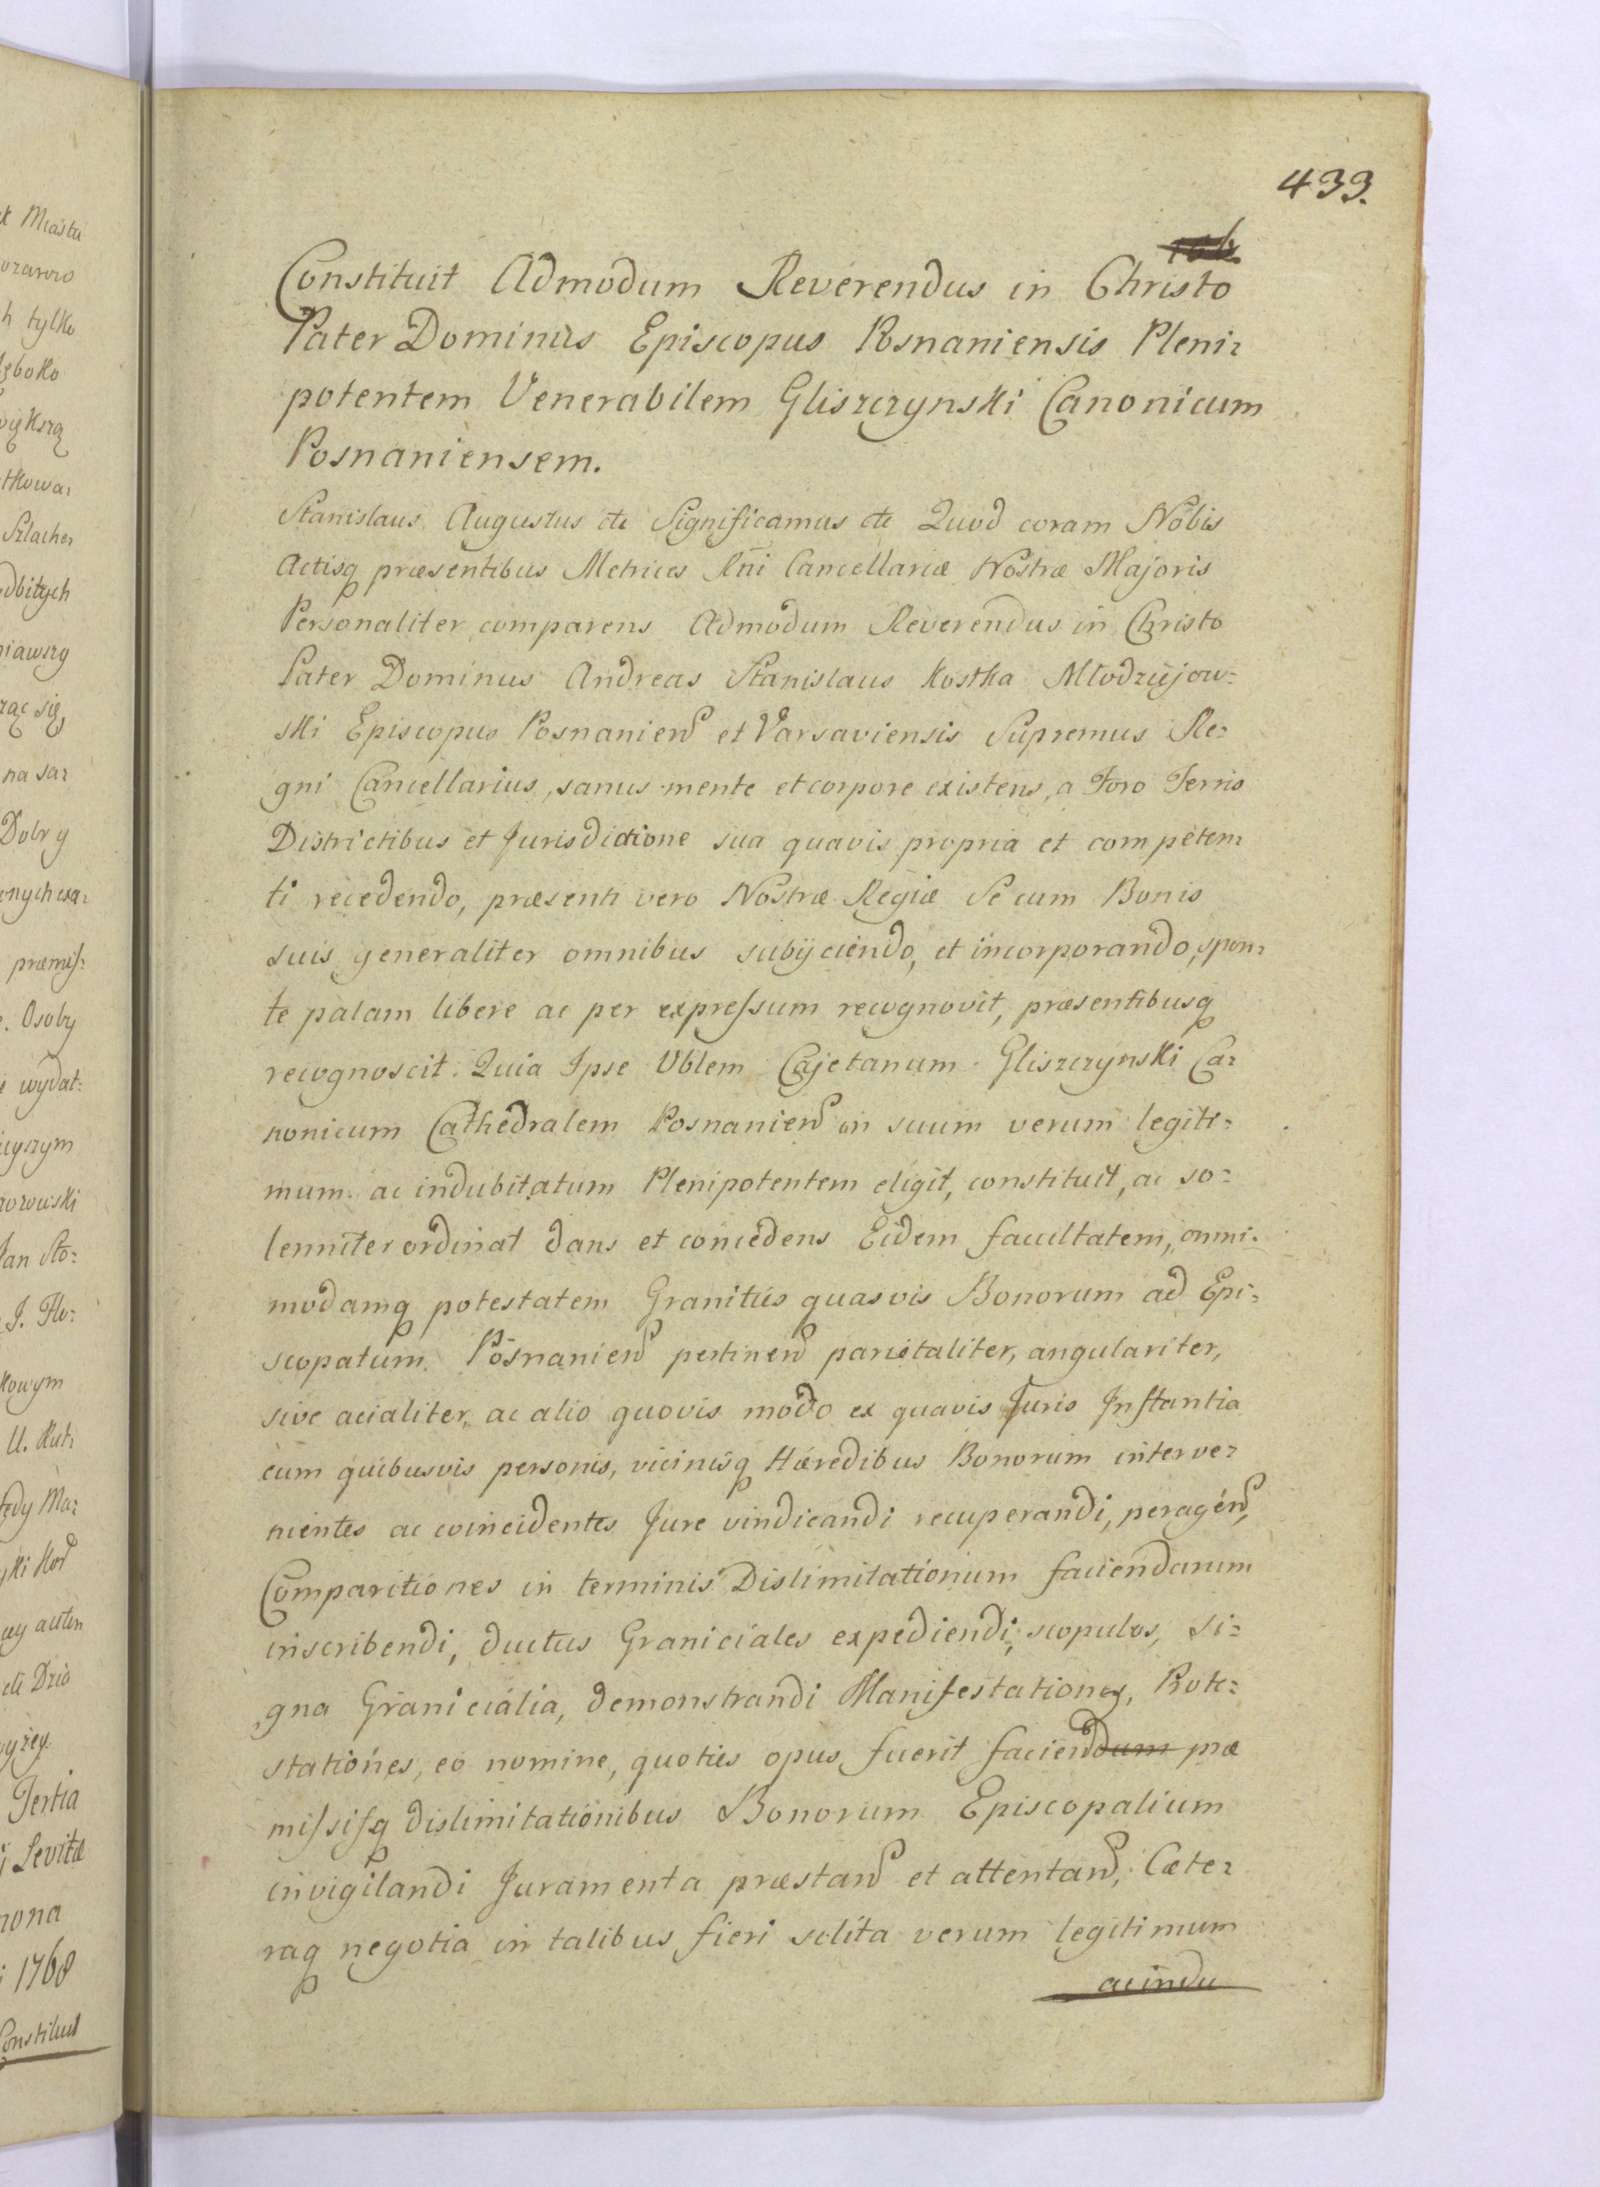 433.
Constituit Admodum Reverendus in Christo
Pater Dominus Episcopus Posnaniensis Pleni=
potentem Venerabilem Gliszczynski Canonicum
Posnaniensem.
Stanislaus Augustus etc Significamus etc Quod coram Nobis
Actisq præsentibus Metrices Rni Cancellariæ Nostræ Majoris
Personaliter comparens Admodum Reverendus in Christo
Pater Dominus Andreas Stanislaus Kostka Młodziejow=
ski Episcopus Posnanien et Varsaviensis Supremus Re=
gni Cancellarius, sanus mente et corpore existens, a Foro Terris
Districtibus et Jurisdictione sua quavis propria et competen=
ti recedendo, præsenti vero Nostræ Regiæ Se cum Bonis
suis generaliter omnibus subijciendo, et incorporando, spon=
te palam libere ac per expressum recognovit, præsentibusq
recognoscit. Quia Ipse Vblem Cajetanum Gliszczynski Ca=
nonicum Cathedralem Posnanien in suum verum legiti=
mum ac indubitatum Plenipotentem eligit, constituit, ac so=
lenniter ordinat dans et concedens Eidem facultatem, omni=
modamq potestatem Granities quasvis Bonorum ad Epi=
scopatum Posnanien pertinen parietaliter, angulariter,
sive acialiter, ac alio quovis modo ex quavis Juris Instantia
cum quibusvis personis, vicinisq Hæredibus Bonorum interve=
nientes ac coincidentes Jure vindicandi recuperandi, peragen,
Comparitiones in terminis Dislimitationum faciendarum
inscribendi, ductus Graniciales expediendi, scopulos, si=
gna Granicialia, demonstrandi Manifestationes, Prote=
stationes, eo nomine, quoties opus fuerit faciendum præ
missisq dislimitationibus Bonorum Episcopalium
invigilandi Juramenta præstan et attentan, Cæte=
raq negotia in talibus fieri solita verum legitimum
ac indu
Miasta
tylko
na sa=
Dobry
præmis=
Osoby
wydat=
Jan Sto=
J. Flo=
Tertia
Levitæ
nona
1768
Constituit